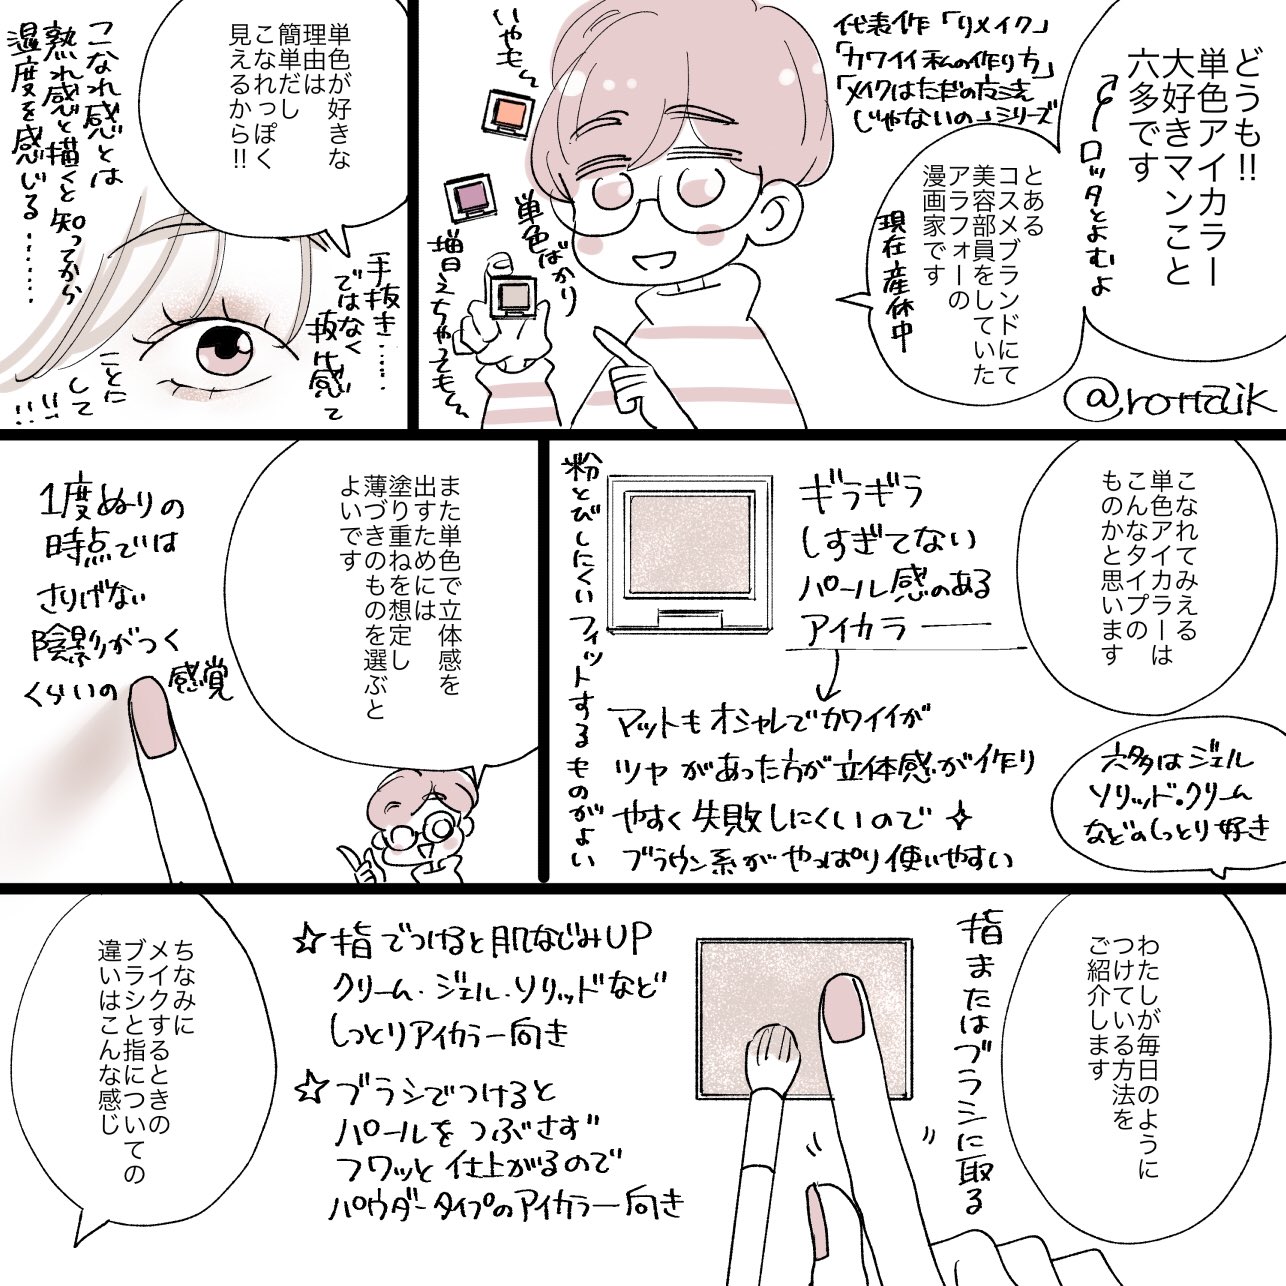 どうも!!
単色アイカラー
大好きマンこと
六多です
ロッタとよむよ
代表作「リメイク」
「カワイイ私の作り方」
「メイクはただの方法
じゃないの」シリーズ
とある
コスメブランドにて
美容部員をしていた
アラフォーの
漫画家です
現在産休中
いやも〜
単色ばかり
増えちゃっても〜
@rottaik
単色が好きな
理由は
簡単だし
こなれっぽく
見えるから!!
こなれ感とは
熟れ感と描くと知ってから
湿度を感じる……
手抜き……
ではなく
抜け感て
ことに
して
!!!
こなれてみえる
単色アイカラーは
こんなタイプの
ものかと思います
ギラギラ
しすぎてない
パール感のある
アイカラー
マットもオシャレでカワイイが
ツヤがあった方が立体感が作り
やすく失敗しにくいので
ブラウン系がやっぱり使いやすい
粉とびしにくいフィットするものがよい
六多はジェル
ソリッド・クリーム
などのしっとり好き
また単色で立体感を
出すためには
塗り重ねを想定し
薄づきのものを選ぶと
よいです
1度ぬりの
時点では
さりげない
陰影がつく
くらいの感覚
わたしが毎日のように
つけている方法を
ご紹介します
指またはブラシに取る
☆指でつけると肌なじみUP
クリーム・ジェル・ソリッドなど
しっとりアイカラー向き
☆ブラシでつけると
パールをつぶさず
フワッと仕上がるので
パウダータイプのアイカラー向き
ちなみに
メイクするときの
ブラシと指についての
違いはこんな感じ